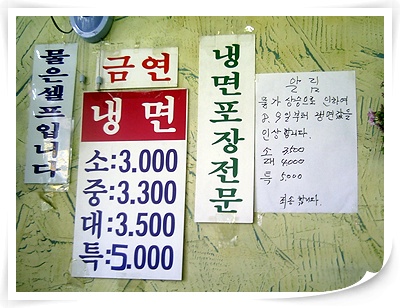 물은셀프입니다
금연
냉면
소:3.000
중:3.300
대:3.500
특:5.000
냉면포장전문
알림
물가 상승으로 인하여
8. 9일부터 냉면값을
인상합니다.
소 3500
대 4000
특 5000
죄송합니다.